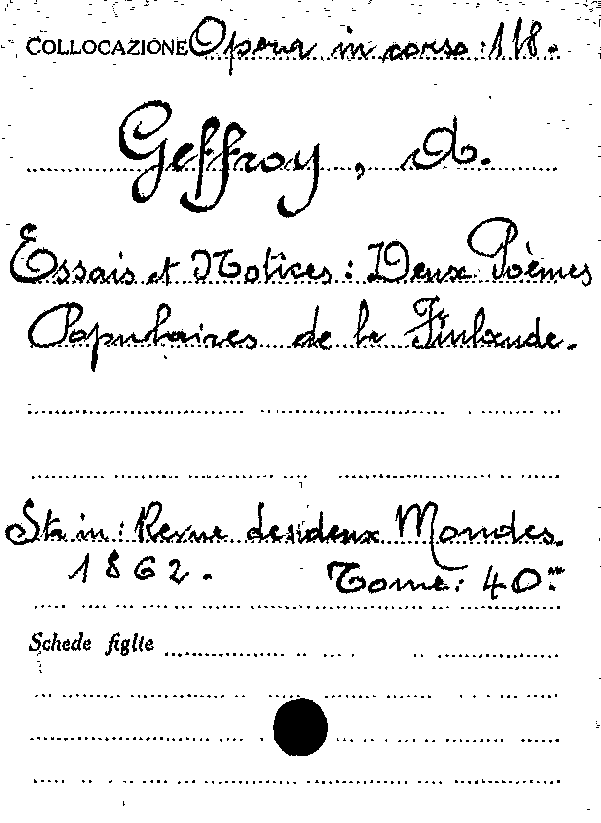 COLLOCAZIONE Opera in corso: 118.
Geffroy, A.
Essais et Notices: Deux Poèmes
Populaires de la Finlande.
Sta in: Revue des deux Mondes.
1862. Tome: 40.me
Schede figlie